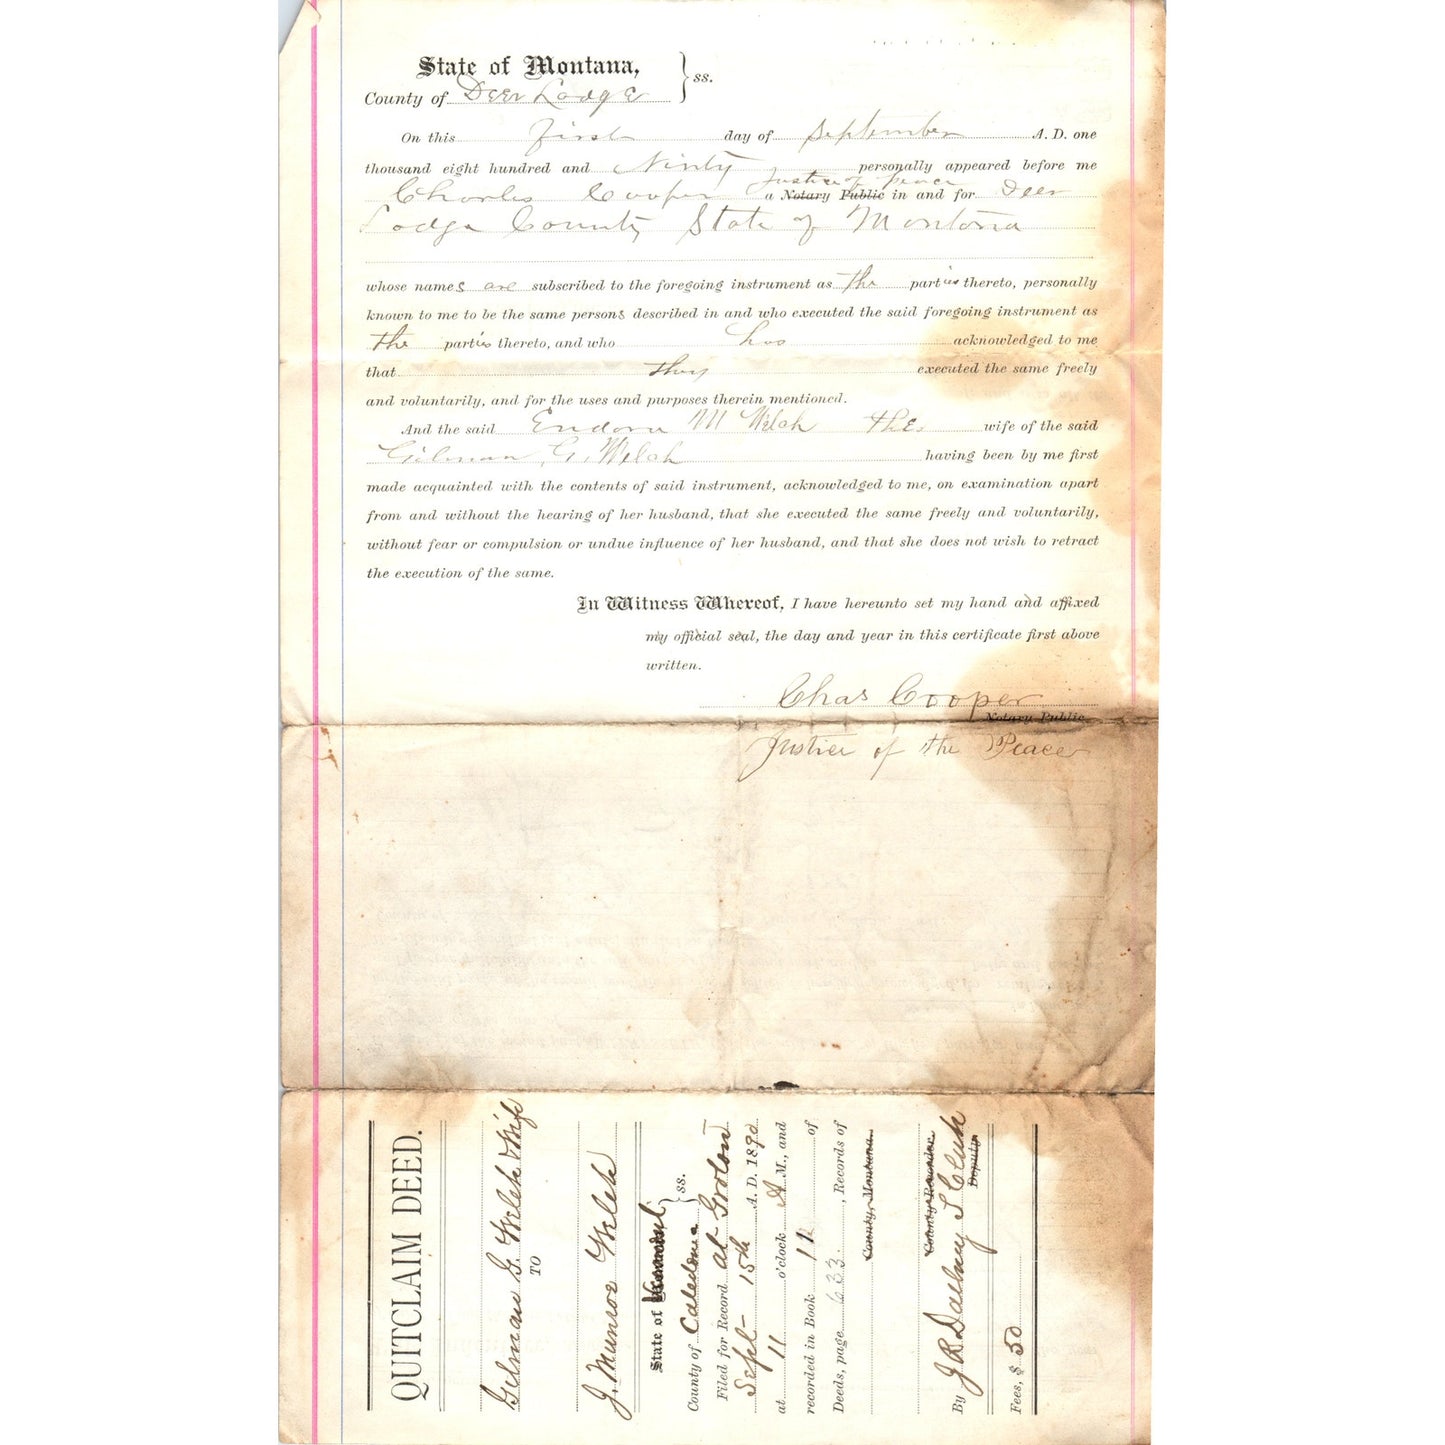 State of Montana,
County of Deer Lodge } ss.
On this first day of September A. D. one
thousand eight hundred and Ninty personally appeared before me
Justice of Peace
Charles Cooper a Notary Public in and for Deer
Lodge County State of Montana
whose names are subscribed to the foregoing instrument as the parties thereto, personally
known to me to be the same persons described in and who executed the said foregoing instrument as
the parties thereto, and who has acknowledged to me
that they executed the same freely
and voluntarily, and for the uses and purposes therein mentioned.
And the said Endora M Welch the wife of the said
Gilman G. Welch having been by me first
made acquainted with the contents of said instrument, acknowledged to me, on examination apart
from and without the hearing of her husband, that she executed the same freely and voluntarily,
without fear or compulsion or undue influence of her husband, and that she does not wish to retract
the execution of the same.
In Witness Whereof, I have hereunto set my hand and affixed
my official seal, the day and year in this certificate first above
written.
Chas Cooper
Notary Public
Justice of the Peace
QUITCLAIM DEED.
Gilman G. Welch & Wife
TO
J. Munroe Welch
State of
County of Caledonia } ss.
Filed for Record at Groton
Sept 15th A. D. 1890
at 11 o'clock A M., and
recorded in Book 12 of
Deeds, page 633, Records of
County, Montana.
County Recorder.
By J R Darling T Clerk
Deputy
Fees, $ 50